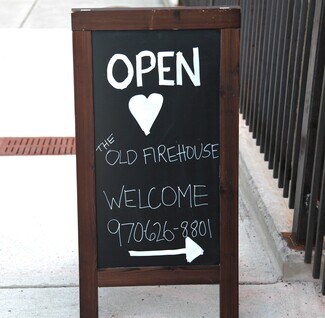 OPEN
THE
OLD FIREHOUSE
WELCOME
970626-8801